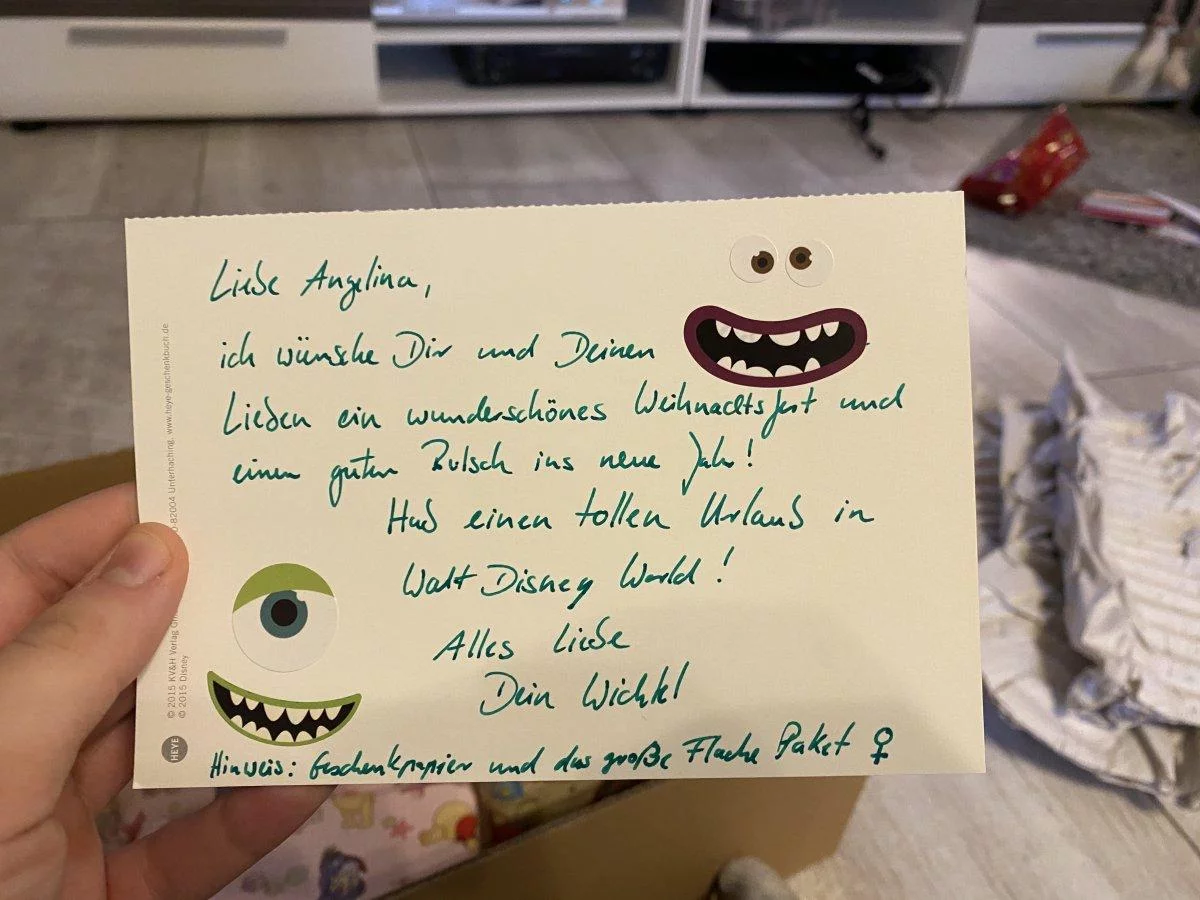 Liebe Angelina,
ich wünsche Dir und Deinen
Lieben ein wunderschönes Weihnachtsfest und
einen guten Rutsch ins neue Jahr!
Hab einen tollen Urlaub in
Walt Disney World!
Alles Liebe
Dein Wichtel
Hinweis: Geschenkpapier und das große Flache Paket ♀
© 2015 KV&H Verlag G 0-82004 Unterhaching, www.heye-geschenkbuch.de
© 2015 Disney
HEYE